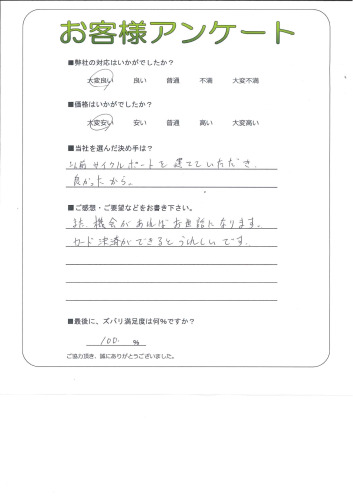 お客様アンケート
■弊社の対応はいかがでしたか?
大変良い 良い 普通 不満 大変不満
■価格はいかがでしたか?
大変安い 安い 普通 高い 大変高い
■当社を選んだ決め手は?
以前サイクルポートを建てていただき、
良かったから。
■ご感想・ご要望などをお書き下さい。
また、機会があればお世話になります。
カード決済ができるとうれしいです。
■最後に、ズバリ満足度は何%ですか?
100. %
ご協力頂き、誠にありがとうございました。